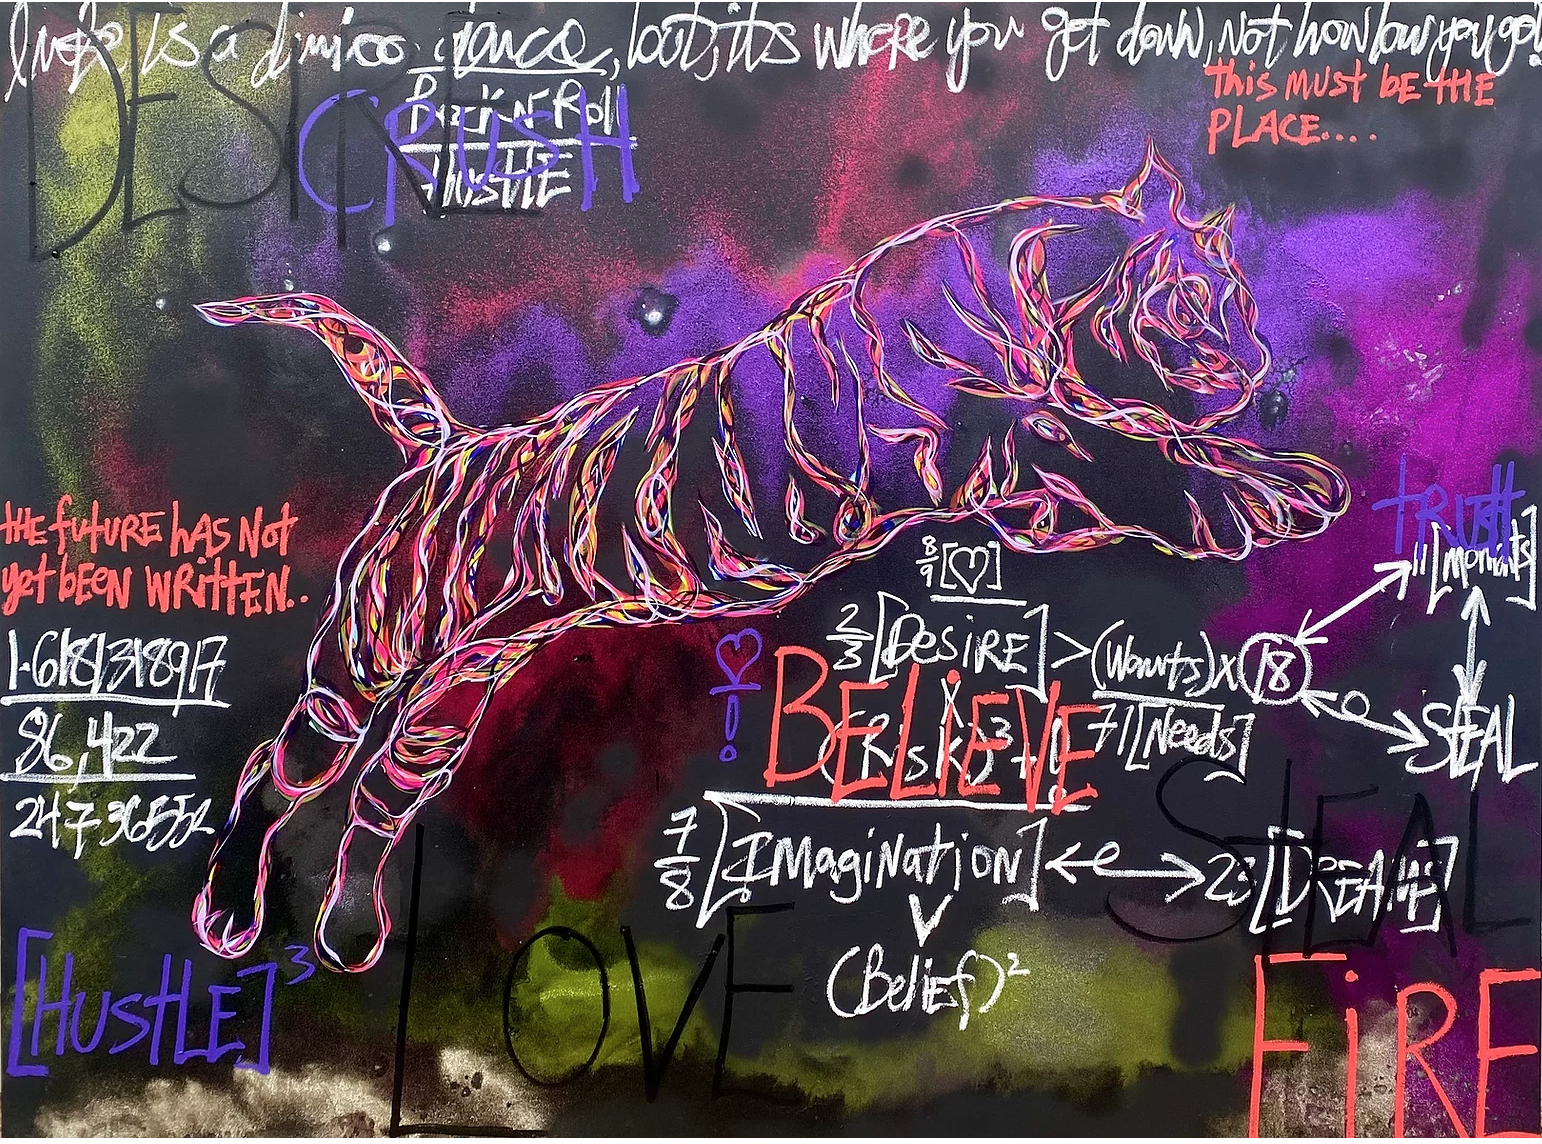 life is a limbo dance, but its where you get down, not how low you go!
DESIRE
CRUSH
Rock N Roll
HUSTLE
this must be the
PLACE....
the future has not
yet been written..
1.618/318917
86,422
24736552
[HUSTLE]³
LOVE
TRUTH
11[moments]
8/9[♡]
2/3[DESIRE] > (Wants) x 18
x
71[Needs]
(RISK)³
♡!
BELIEVE
STEAL
7/8[IMagiNatioN] ↔ 23[DREAMS]
(Belief)²
STEAL
FiRE